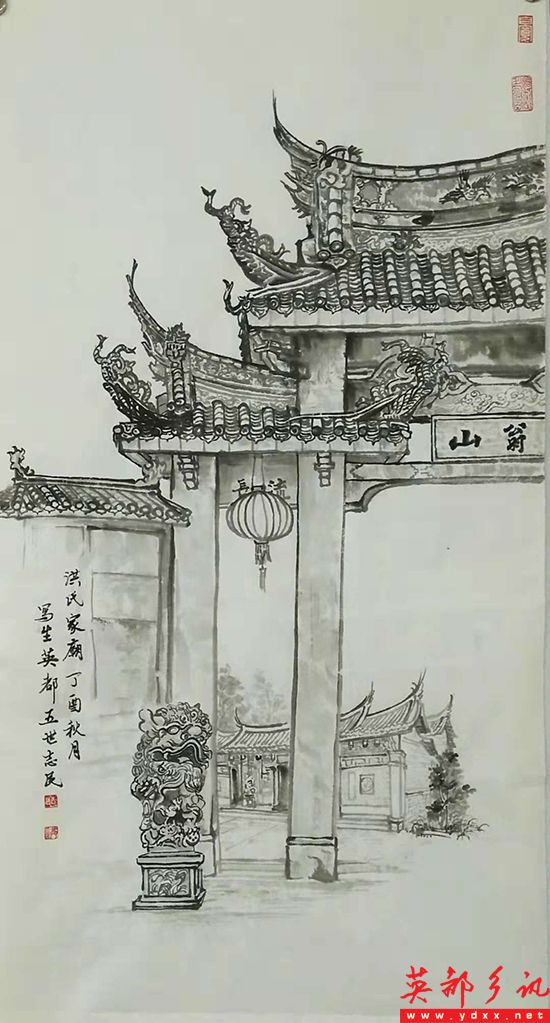 翁山
洪氏家廟 丁酉秋月
写生英都 五世志民
英都乡讯
www.ydxx.net